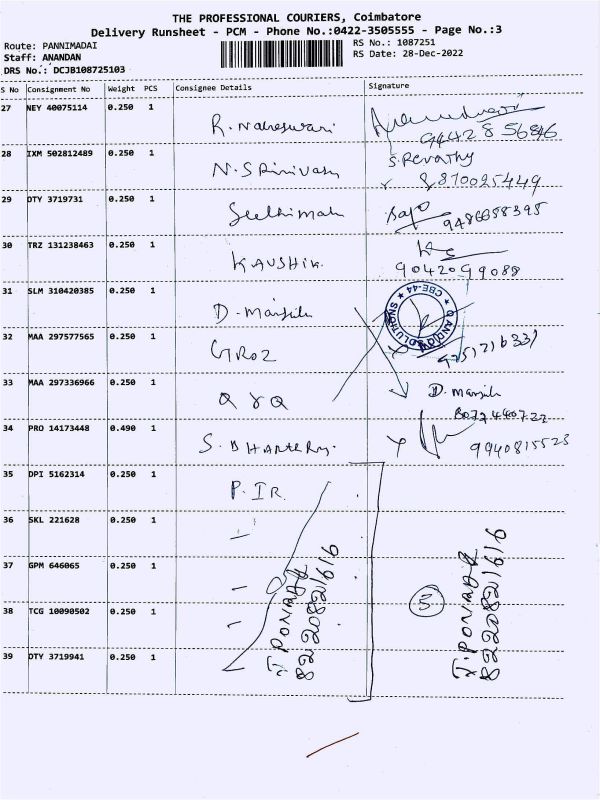 THE PROFESSIONAL COURIERS, Coimbatore
Delivery Runsheet - PCM - Phone No.:0422-3505555 - Page No.:3
Route: PANNIMADAI
RS No.: 1087251
Staff: ANANDAN
RS Date: 28-Dec-2022
DRS No.: DCJB108725103
S No Consignment No Weight PCS Consignee Details Signature
27 NEY 40075114 0.250 1
R. Naheswari
9442856846
28 IXM 502812489 0.250 1
N. Srinivasn
S. Revathy
8870025449
29 DTY 3719731 0.250 1
9486058395
30 TRZ 131238463 0.250 1
KAUSHIK.
9042099088
31 SLM 310420385 0.250 1
D. Manjile
CBE-44
32 MAA 297577565 0.250 1
33 MAA 297336966 0.250 1
D. Manjile
8072440722
34 PRO 14173448 0.490 1
9940815523
35 DPI 5162314 0.250 1
P. IR
36 SKL 221628 0.250 1
37 GPM 646065 0.250 1
38 TCG 10090502 0.250 1
5
39 DTY 3719941 0.250 1
8220821616
8220821616